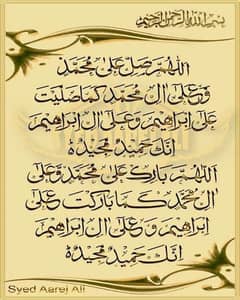 بسم الله الرحمن الرحيم
اللهم صل على محمد
وعلى ال محمد كما صليت
على ابراهيم وعلى ال ابراهيم
انك حميد مجيد
اللهم بارك على محمد وعلى
ال محمد كما باركت على
ابراهيم وعلى ال ابراهيم
انك حميد مجيد
Syed Aarej Ali